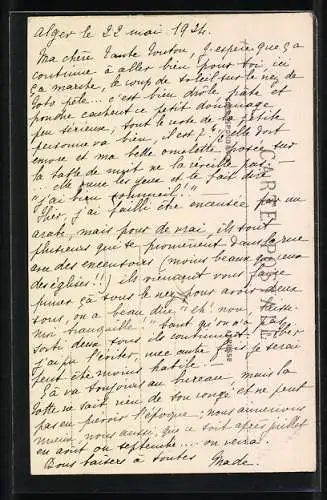 Alger le 22 mai 1924.
Ma chère Tante Touton, J'espère que ça
continue à aller bien pour toi, ici
ça marche, le coup de soleil sur le nez de
Toto pèle... c'est bien drôle pâte et
poudre cachent ce petit dommage
peu sérieux, tout le reste de la petite
personne va bien il est 7h elle dort
encore et ma belle omelette posée sur
la table de nuit ne la réveille pas..
... elle ouvre les yeux et te fait dire
"j'ai bien sommeil!"
Hier, j'ai failli être encensée par un
arabe, mais pour de vrai, ils sont
plusieurs qui se promènent dans la rue
avec des encensoirs (moins beaux que ceux
des églises!!) ils viennent vous faire
fumer ça sous le nez pour avoir deux
sous, on a beau dire "eh! non laisse-
moi tranquille!" tant qu'on n'a pas
sorti deux sous ils continuent. Hier
j'ai pu l'éviter, une autre fois je serai
peut être moins habile.
Ça va toujours au bureau mais la
Totte ne sait rien de son congé et ne peut
pas en prévoir l'époque; nous aimerions
mieux nous aussi, que ce soit après juillet
en août ou septembre... on verra.
Bons baisers à toutes Made.
CARTE POSTALE
CORRESPONDANCE
ADRESSE